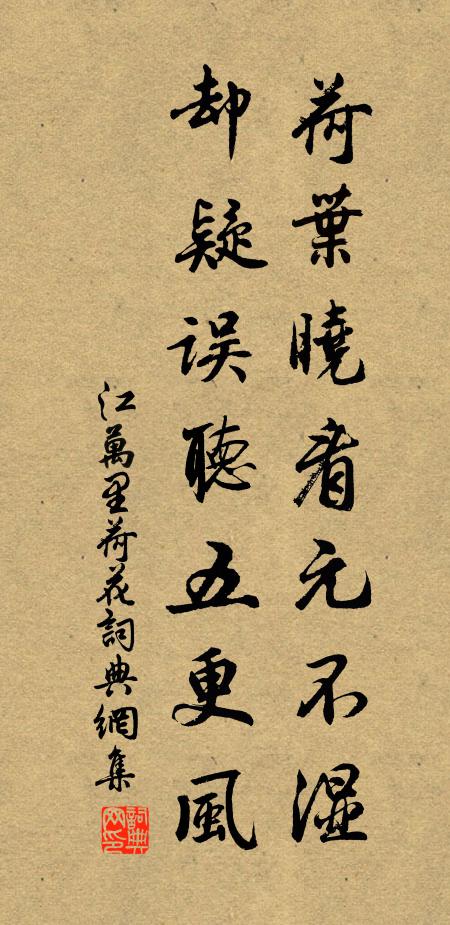 荷葉曉看元不濕
却疑误聽五更風
江萬里荷花詞典網集
詞典網印